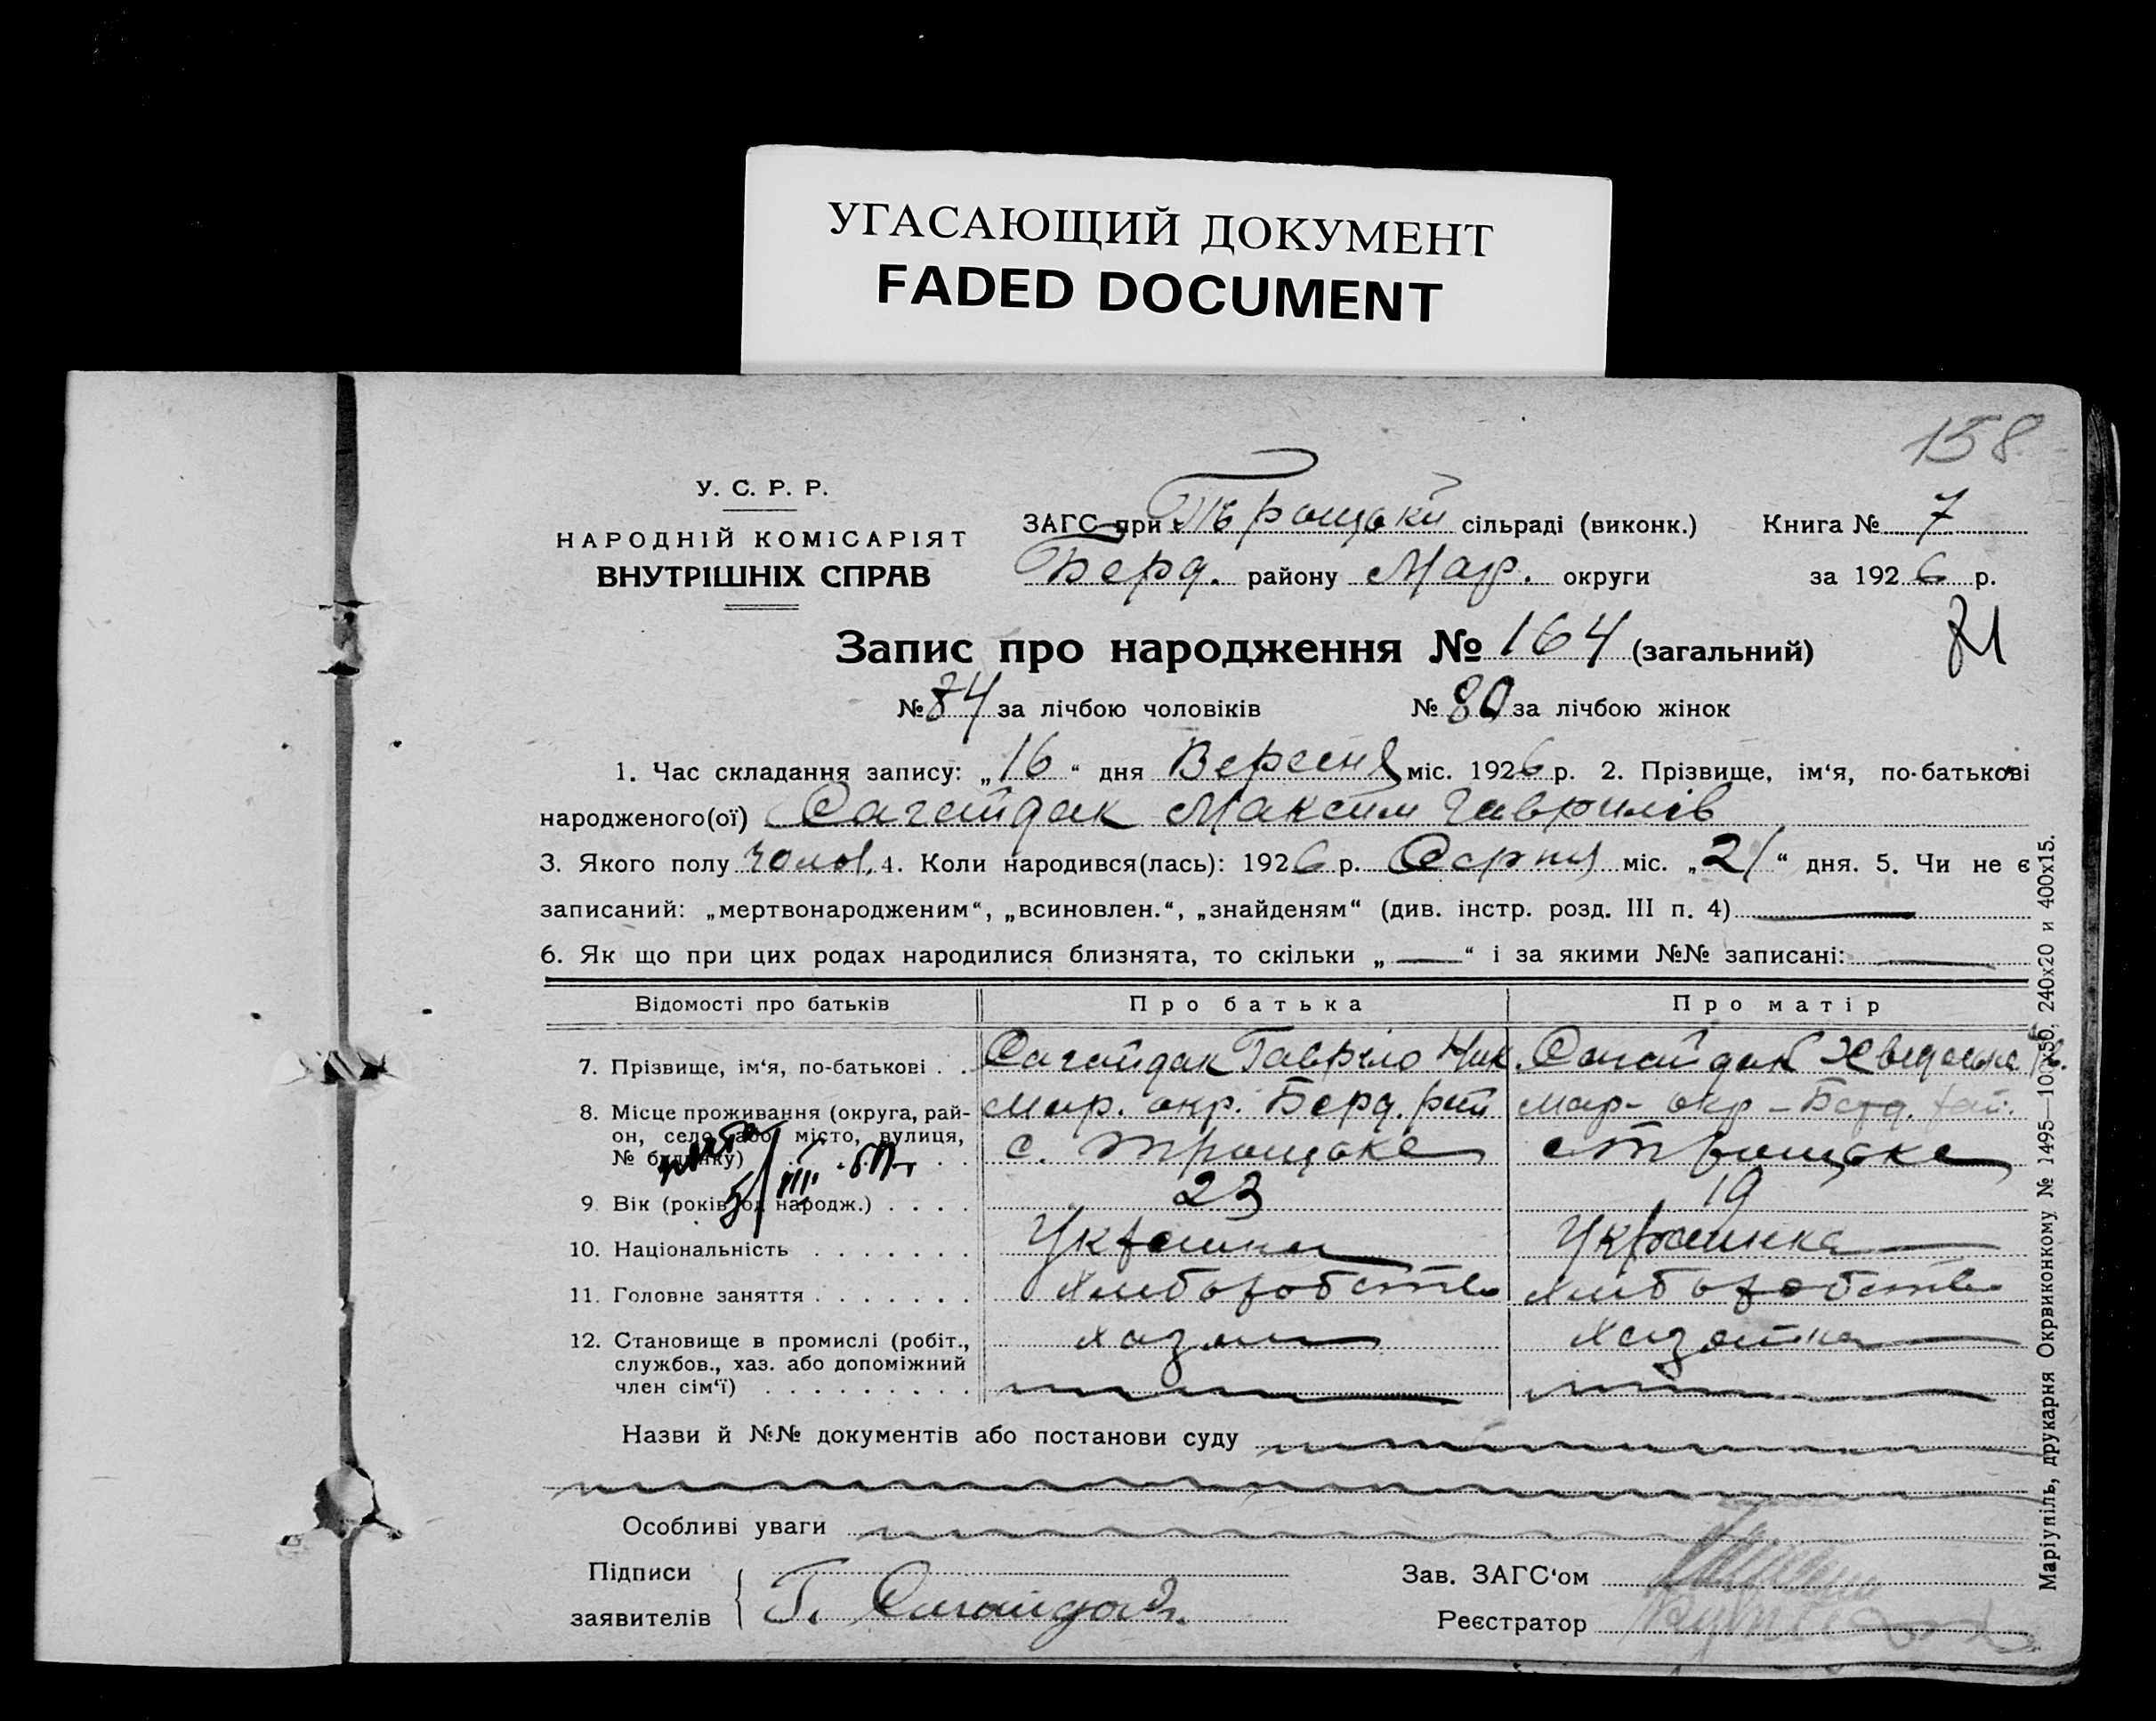 УГАСАЮЩИЙ ДОКУМЕНТ
FADED DOCUMENT
158
У. С. Р. Р.
НАРОДНІЙ КОМІСАРІЯТ
ВНУТРІШНІХ СПРАВ
ЗАГС при Троцькій сільраді (виконк.) Книга № 7
Берд. району Мар. округи за 1926 р.
Запис про народження № 164 (загальний)
№ 84 за лічбою чоловіків № 80 за лічбою жінок
1. Час складання запису: „16“ дня Вересня міс. 1926 р. 2. Прізвище, ім‘я, по-батькові
народженого(ої) Сагайдак Максим Гаврилів
3. Якого полу чолов. 4. Коли народився(лась): 1926 р. Серпня міс. „21“ дня. 5. Чи не є
записаний: „мертвонародженим“, „всиновлен.“, „знайденям“ (див. інстр. розд. III п. 4)
6. Як що при цих родах народилися близнята, то скільки „—“ і за якими №№ записані:
Відомості про батьків Про батька Про матір
7. Прізвище, ім‘я, по-батькові . . Сагайдак Гаврило Ник. Сагайдак
8. Місце проживання (округа, рай- Мар. окр. Берд. рай Мар- окр - Берд. рай.
он, село або місто, вулиця, с. Троцьке с Троцьке
№ будинку)
9. Вік (років од народж.) . . . . 23 19
10. Національність . . . . . . . Українець Українка
11. Головне заняття . . . . . . . Хліборобство Хліборобство
12. Становище в промислі (робіт., хазяін хазяйка
службов., хаз. або допоміжний
член сім‘ї) . . . . . . . . .
Назви й №№ документів або постанови суду
Особливі уваги
Підписи
заявителів Г. Сагайдак
Зав. ЗАГС‘ом
Реєстратор
Маріупіль, друкарня Окрвиконкому № 1495—10х50, 240х20 и 400х15.